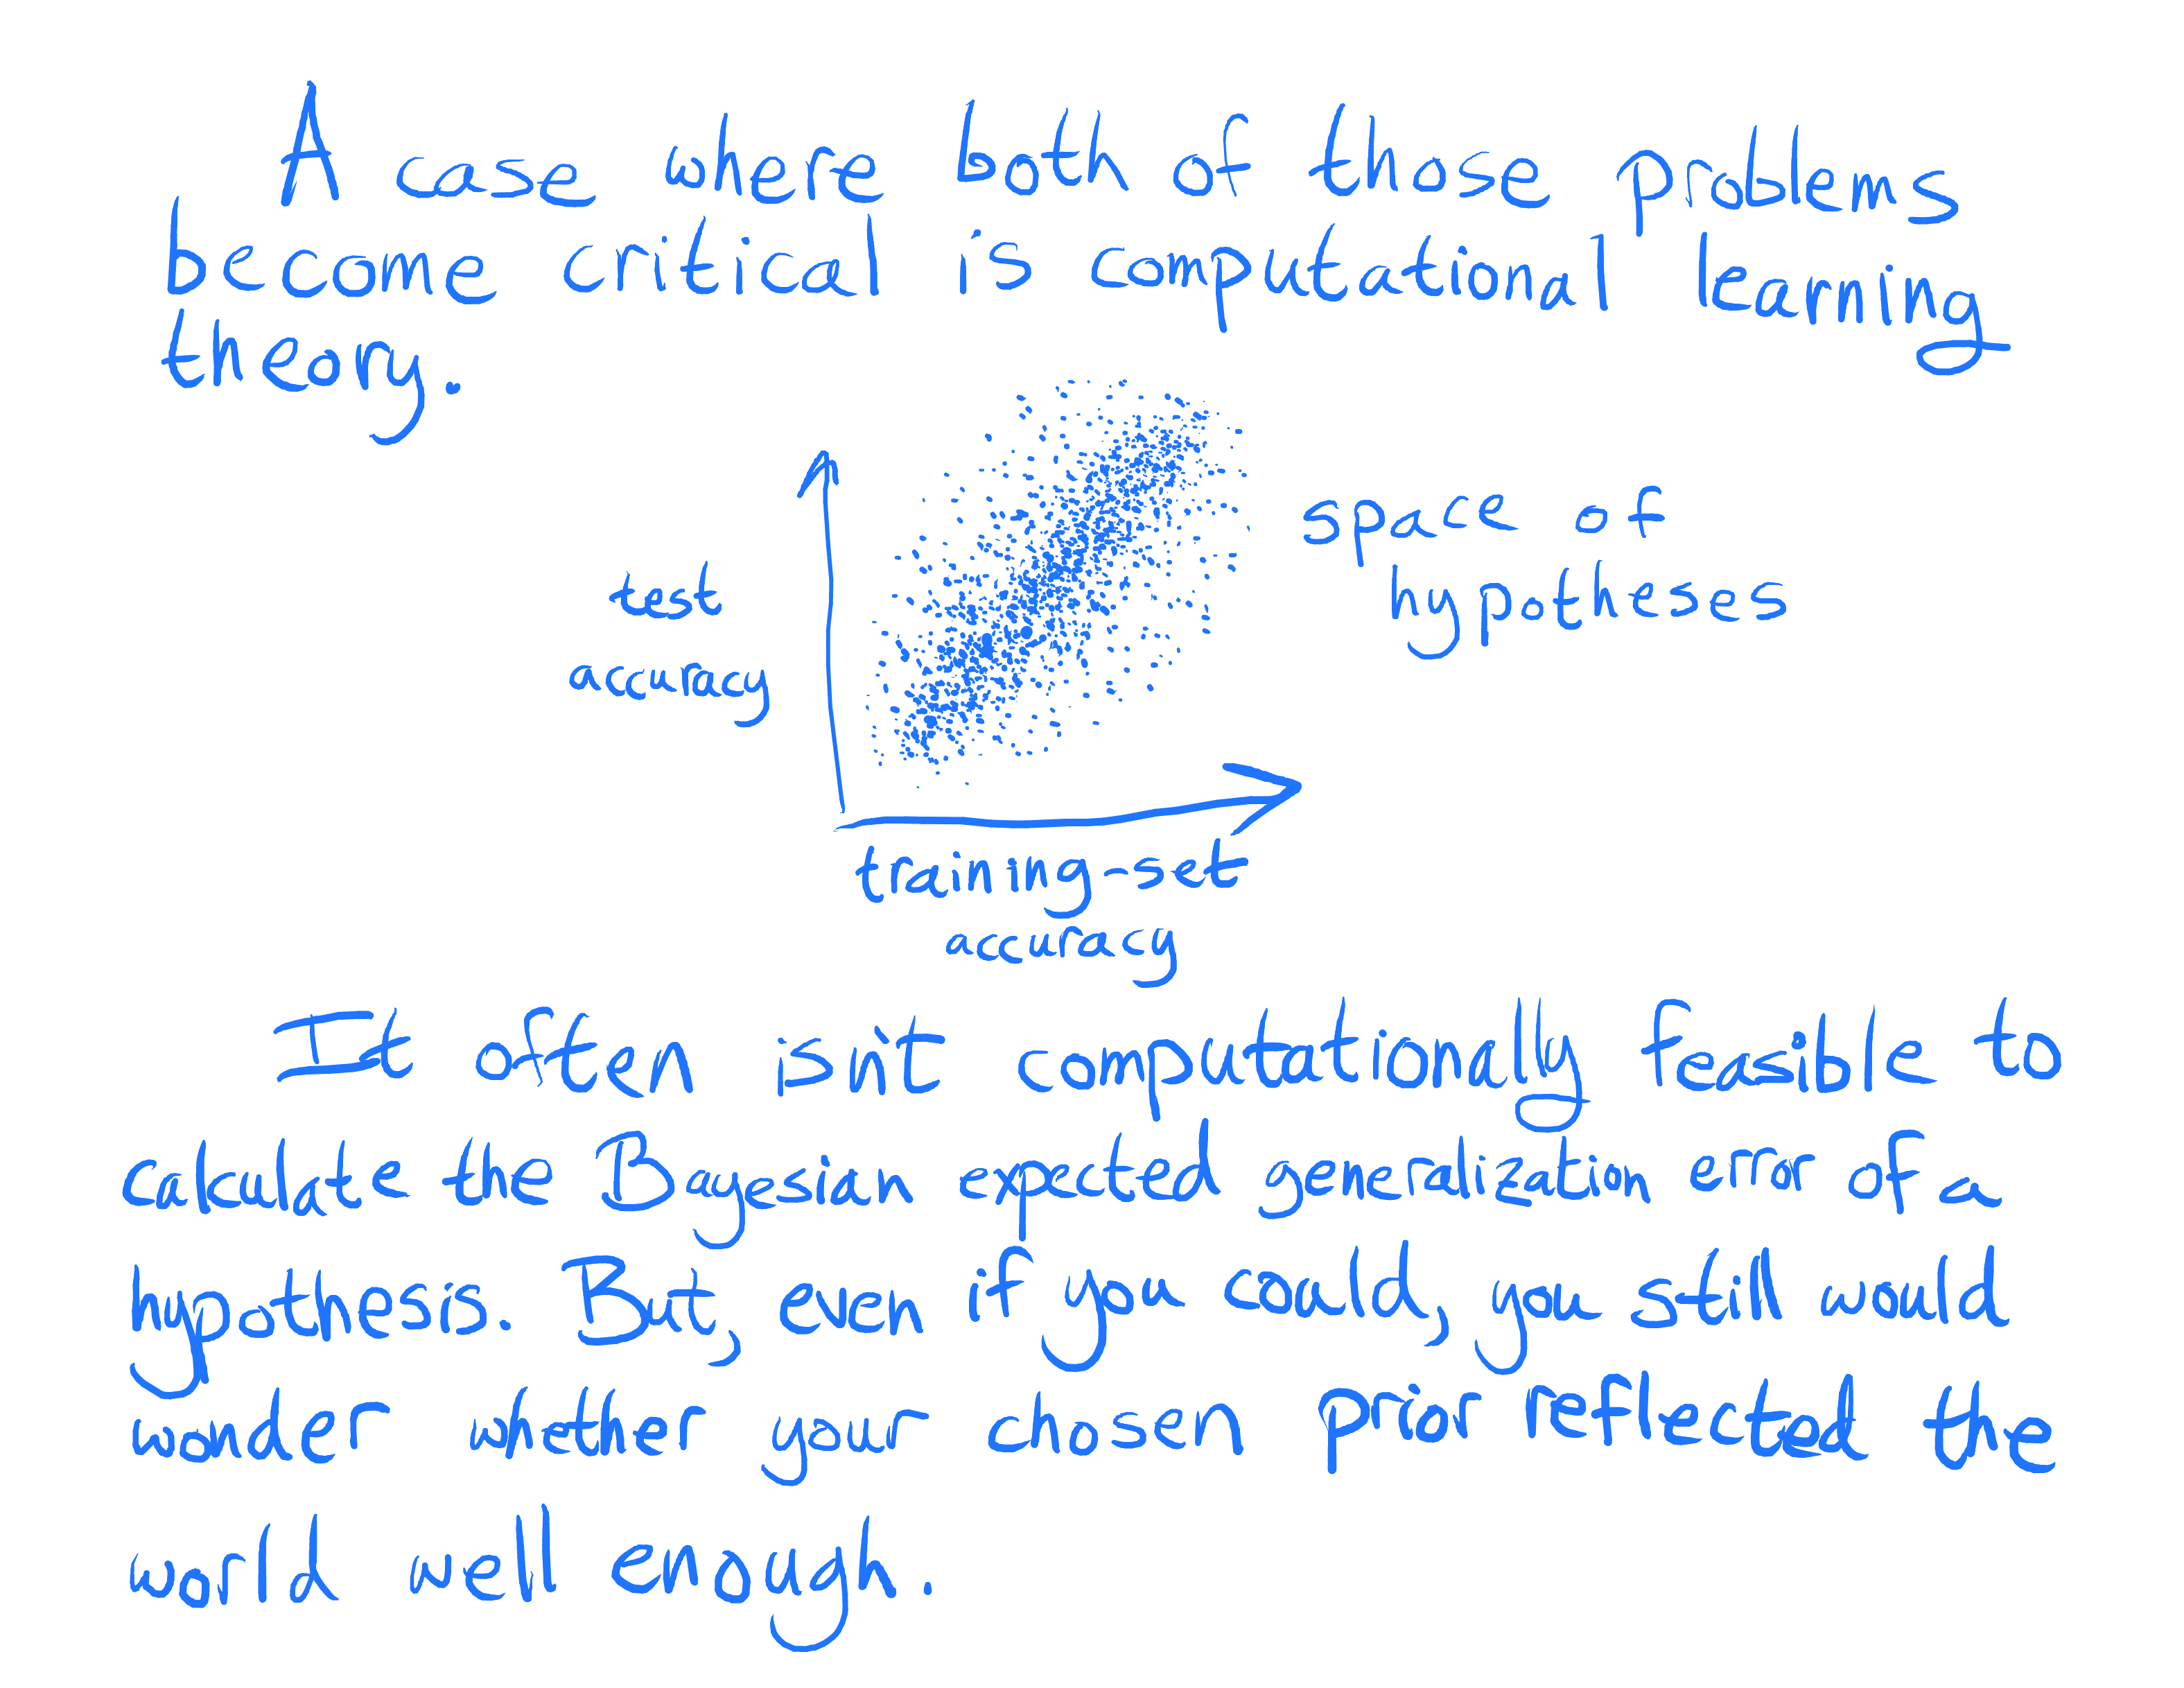 A case where both of those problems
become critical is computational learning
theory.
test
accuracy
space of
hypotheses
training-set
accuracy
It often isn't computationally feasible to
calculate the Bayesian expected generalization error of a
hypothesis. But, even if you could, you still would
wonder whether your chosen prior reflected the
world well enough.